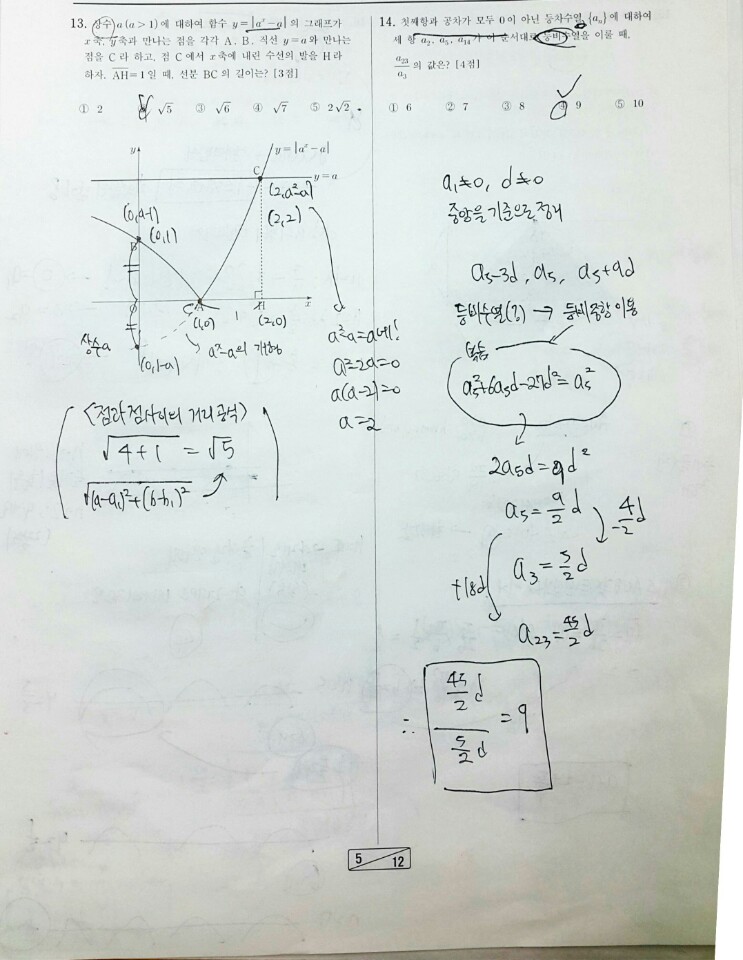 13. 상수 a (a>1)에 대하여 함수 y=|a^x-a|의 그래프가
x축, y축과 만나는 점을 각각 A, B, 직선 y=a와 만나는
점을 C라 하고, 점 C에서 x축에 내린 수선의 발을 H라
하자. AH=1일 때, 선분 BC의 길이는? [3점]
① 2 ② √5 ③ √6 ④ √7 ⑤ 2√2
y
y=|a^x-a|
C
y=a
(2,a²-a)
(2,2)
(0,a-1)
(0,1)
B
O
A
1
H
x
(1,0)
(2,0)
상수a
(0,1-a)
a²-a=a네!
a²-2a=0
a(a-2)=0
a=2
<점과 점사이의 거리공식>
√4+1 = √5
√(a-a₁)²+(b-b₁)²
14. 첫째항과 공차가 모두 0이 아닌 등차수열 {aₙ}에 대하여
세 항 a₂, a₅, a₁₄가 이 순서대로 등비수열을 이룰 때,
a₂₃/a₃의 값은? [4점]
① 6 ② 7 ③ 8 ④ 9 ⑤ 10
a₁≠0, d≠0
중앙을 기준으로 전개
a₅-3d, a₅, a₅+9d
→ 등비중항 이용
a₅²+6a₅d-27d²=a₅²
2a₅d=9d²
a₅=9/2 d
-4/2 d
a₃=5/2 d
+18d
a₂₃=45/2 d
∴ (45/2 d)/(5/2 d) = 9
5
12